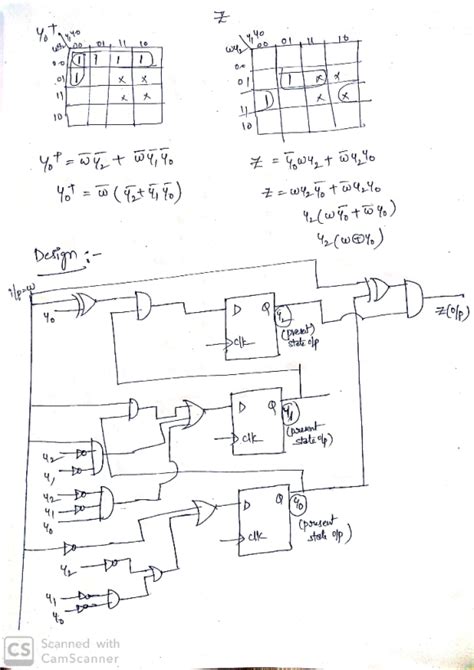 Y₀⁺
Z
y₁y₀
wy₂ 00 01 11 10
00 1 1 1 1
01 1 x x
11 x x
10
y₁y₀
wy₂ 00 01 11 10
00
01 1 x x
11 1 x x
10
Y₀⁺ = w̅ y̅₂ + w̅ y̅₁ y̅₀
Y₀⁺ = w̅ (y̅₂ + y̅₁ y̅₀)
Z = y̅₀wy₂ + w̅y₂y₀
Z = wy₂y̅₀ + w̅y₂y₀
y₂(wy̅₀ + w̅y₀)
y₂(w⊕y₀)
Design :-
i/p=w
y₀
D Q y₂
clk
(present)
state o/p
Z(o/p)
D Q y₁
clk
(present
state o/p)
y₂
y₁
y₂
y₁
y₀
D Q y₀
clk
(present
state o/p)
y₂
y₁
y₀
CS Scanned with
CamScanner